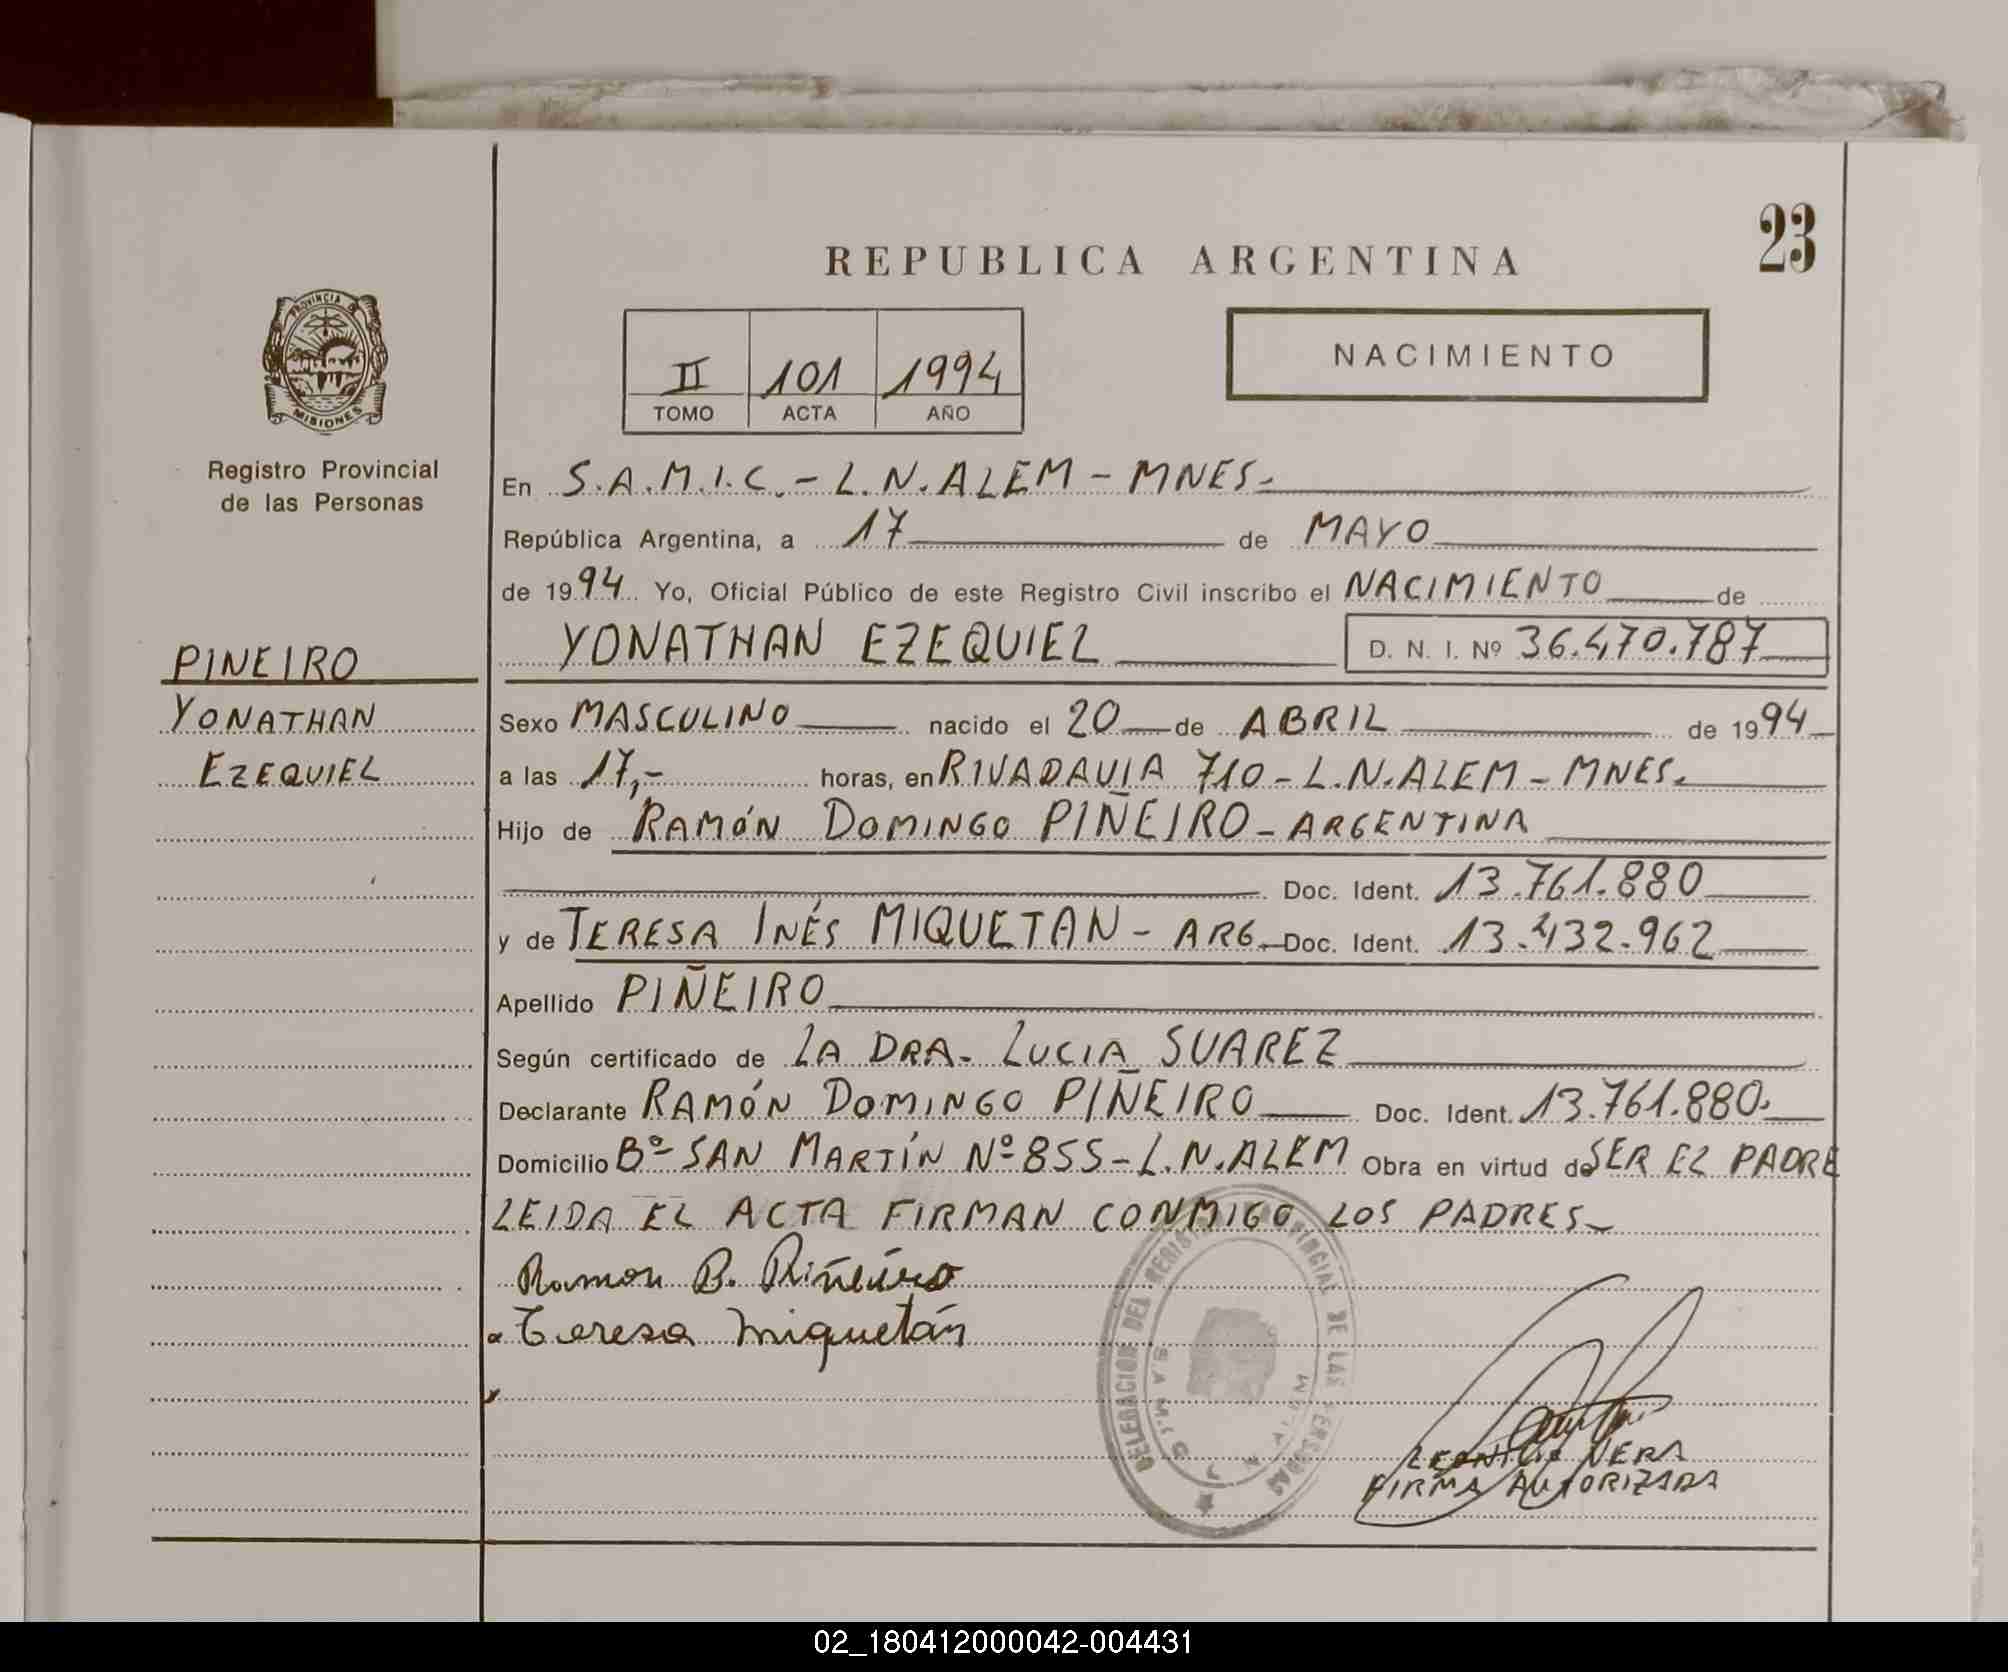 23
REPUBLICA ARGENTINA
PROVINCIA DE
MISIONES
Registro Provincial
de las Personas
II 101 1994
TOMO ACTA AÑO
NACIMIENTO
En S.A.M.I.C. - L.N. ALEM - MNES.
República Argentina, a 17 de MAYO
de 1994 Yo, Oficial Público de este Registro Civil inscribo el NACIMIENTO de
YONATHAN EZEQUIEL D. N. I. Nº 36.470.787
PINEIRO
YONATHAN
EZEQUIEL
Sexo MASCULINO nacido el 20 de ABRIL de 1994
a las 17,- horas, en RIVADAVIA 710 - L.N. ALEM - MNES.
Hijo de RAMÓN DOMINGO PIÑEIRO - ARGENTINA
Doc. Ident. 13.761.880
y de TERESA INÉS MIQUETAN - ARG. Doc. Ident. 13.432.962
Apellido PIÑEIRO
Según certificado de LA DRA. LUCIA SUAREZ
Declarante RAMÓN DOMINGO PIÑEIRO Doc. Ident. 13.761.880.
Domicilio Bº SAN MARTÍN Nº 855 - L.N. ALEM Obra en virtud de SER EL PADRE
LEIDA EL ACTA FIRMAN CONMIGO LOS PADRES
Ramon D. Piñeiro
Teresa Miquetán
DELEGACION DEL REGISTRO PROVINCIAL DE LAS PERSONAS
NERA
FIRMA AUTORIZADA
02_180412000042-004431